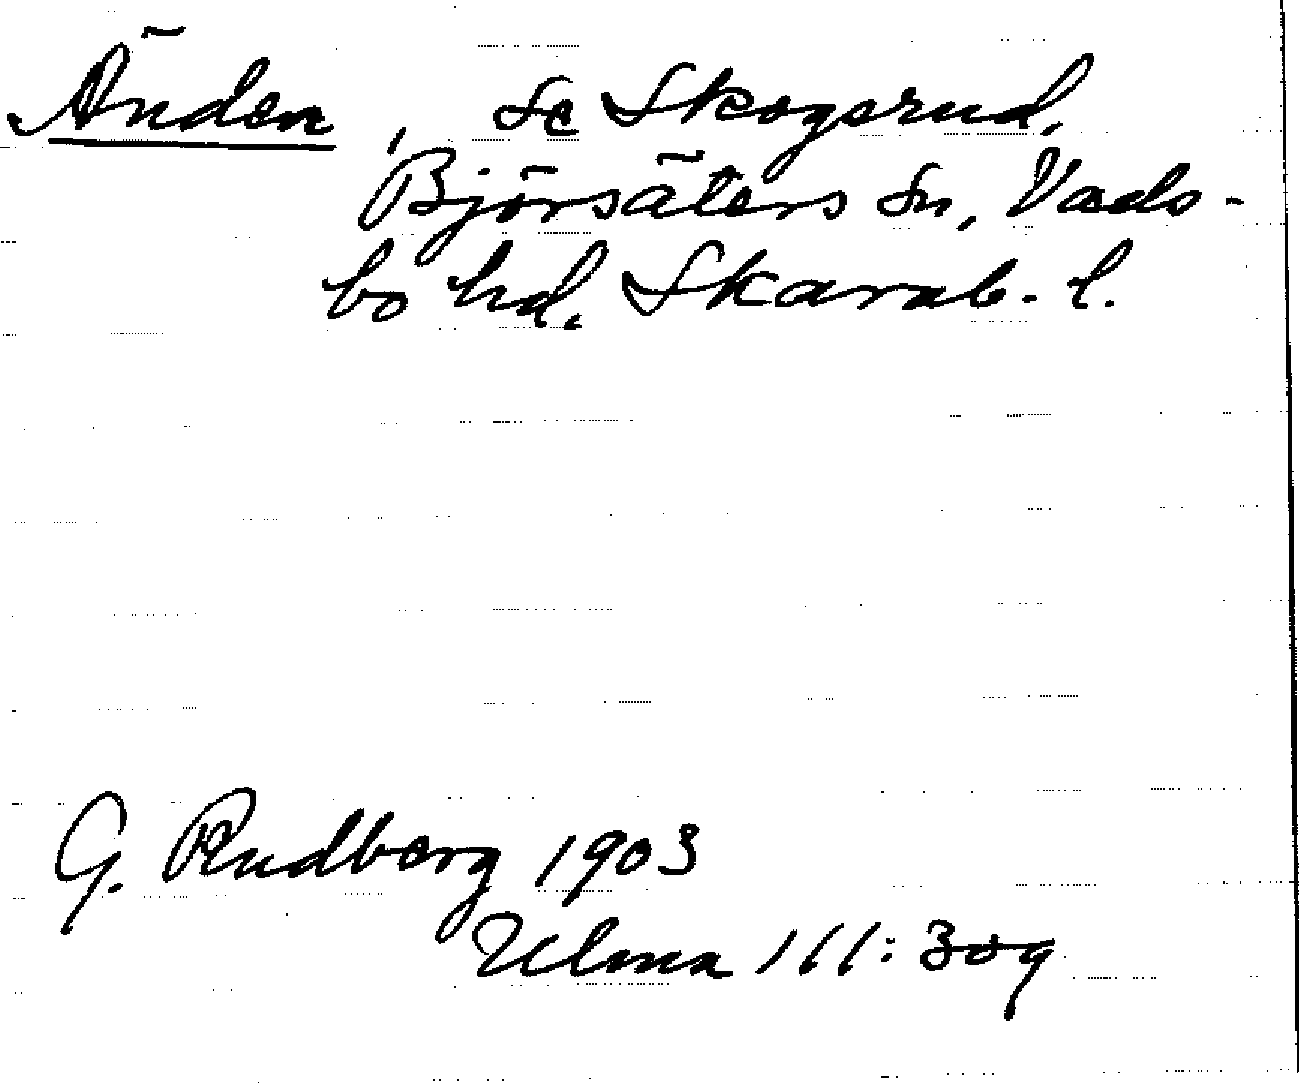 Änden, Se Skogsrud,
Björsäters Sn, Vads-
bo hd. Skarab. l.
G. Rudberg 1903
Ulma 111:309